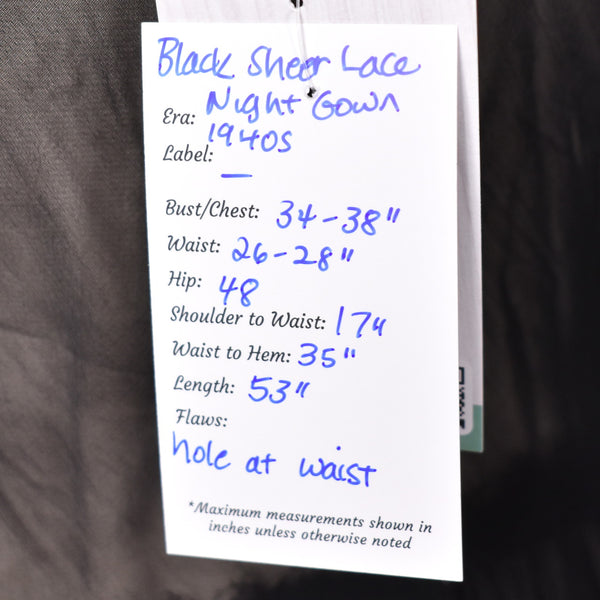 Black Sheer Lace
Night Gown
Era: 1940s
Label: —
Bust/Chest: 34-38"
Waist: 26-28"
Hip: 48
Shoulder to Waist: 17"
Waist to Hem: 35"
Length: 53"
Flaws:
hole at waist
*Maximum measurements shown in
inches unless otherwise noted